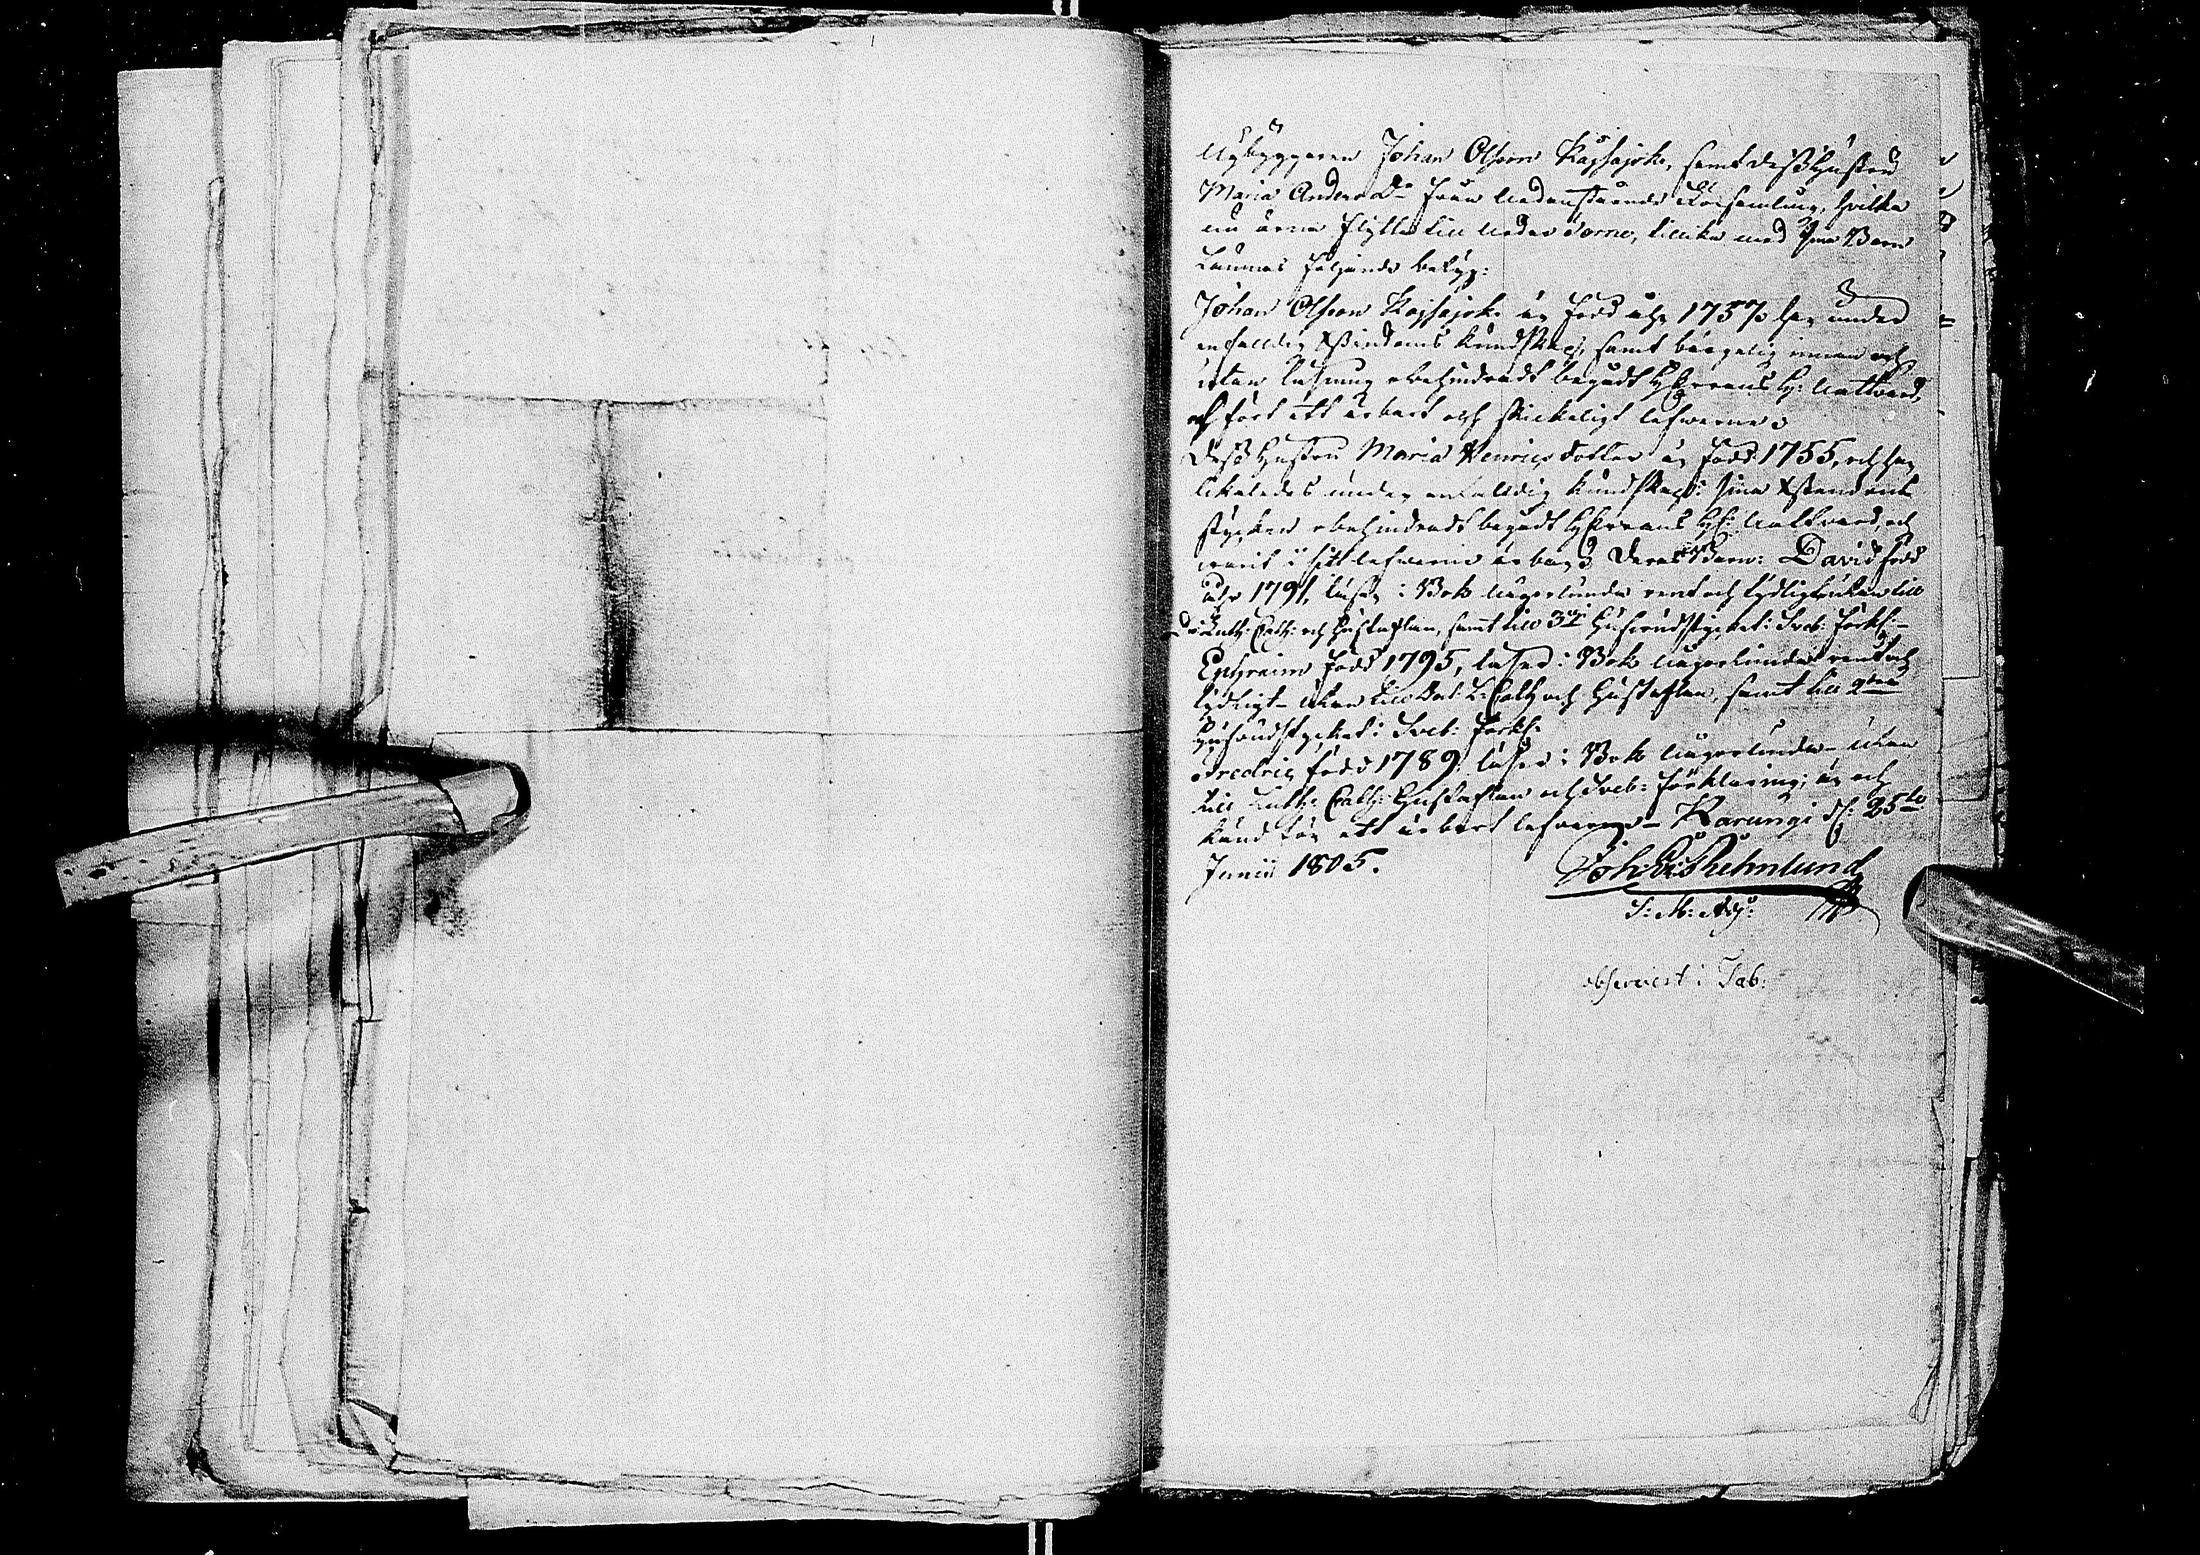 Nybyggaren Johan Olsson Kajsajok, samt dess Hustru
Maria Anders D:r från nedanstående Församling, hvilka
nu ärna flytta till Neder Torne, tillika med sina Barn
lämnas följande betyg:
Johan Olsson Kajsajok är född åhr 1757. har under
enfaldig Xstendoms kundskap, samt innan och
utan läsning obehindradt begådt HErrans H: Nattvard,
och fört ett ärbart och skickeligt lefwerne.
Dess Hustru Maria Henrics dotter är född 1755, och har
likaledes under enfaldig kundskap i sina Xstendoms
stycken obehindradt begådt HErrans H: Nattvard, och
warit i sitt lefwerne ärbar. Deras Barn: David född
åhr 1791, läser i Bok någorlunda rent och tydligt utan till
Luth: Cath: och Hustaflan, samt till 3:dje Hufvudstycket i Sveb: förkl:
Ephraim född 1795, läser i Bok någorlunda rent och
tydligt utan till L: Cath och Hustaflan, samt till 2:dra
Hufvudstycket i Sveb: förkl:
Fredric född 1789 läser i Bok någorlunda utan
till Luth: Cath: Hustaflan och Sveb: förklaring; är och
känd för ett ärbart lefwerne Karungi d: 25:te
Junii 1805.
Joh: Rhemlund
S: M: Adj:
observert i Tab: